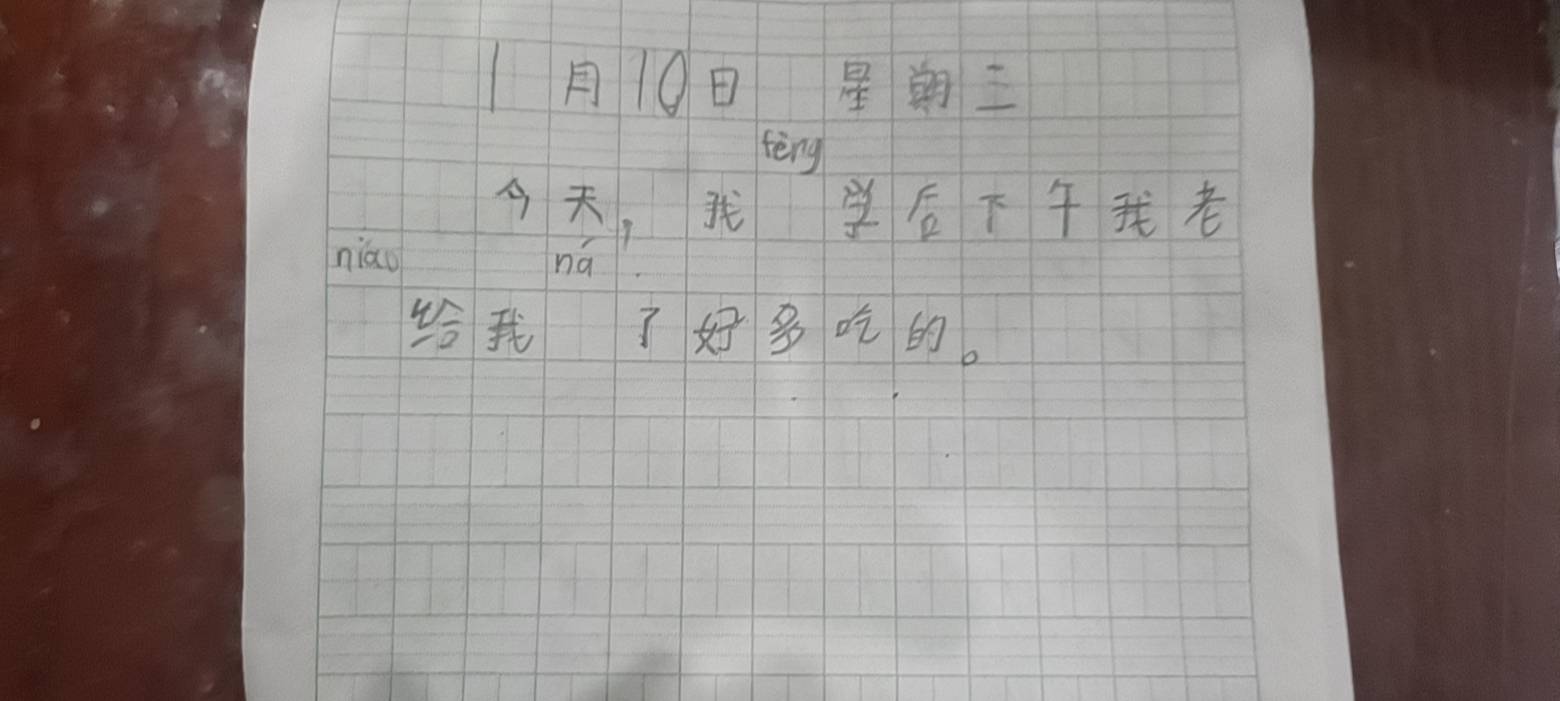 1月10日 星期三
fèng
今天，我 学后下午我老
niáo ná
给我 了好多吃的。